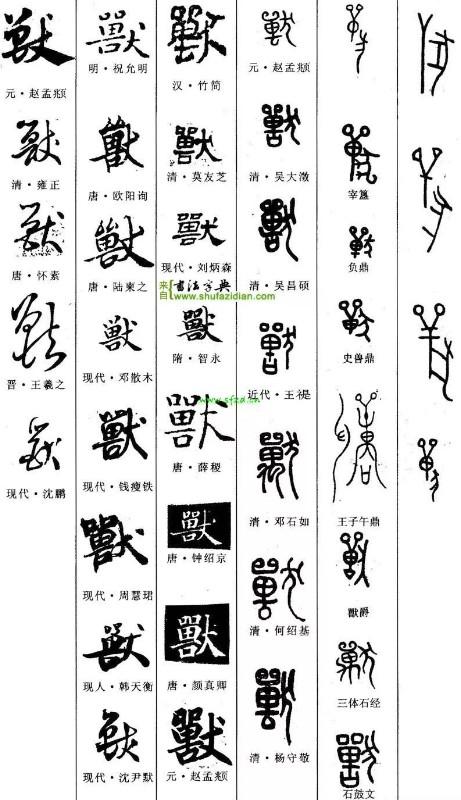 獸
元·赵孟頫
獸
清·雍正
獸
唐·怀素
獸
晋·王羲之
獸
现代·沈鹏
獸
明·祝允明
獸
唐·欧阳询
獸
唐·陆柬之
獸
现代·邓散木
獸
现代·钱瘦铁
獸
现代·周慧珺
獸
现人·韩天衡
獸
现代·沈尹默
獸
汉·竹简
獸
清·莫友芝
獸
现代·刘炳森
来自
书法字典
www.shufazidian.com
獸
隋·智永
www.sfzd.cn
獸
唐·薛稷
獸
唐·钟绍京
獸
唐·颜真卿
獸
元·赵孟頫
獸
元·赵孟頫
獸
清·吴大澂
獸
清·吴昌硕
獸
近代·王禔
獸
清·邓石如
獸
清·何绍基
獸
清·杨守敬
宰簋
负鼎
史兽鼎
王子午鼎
獸爵
三体石经
石鼓文